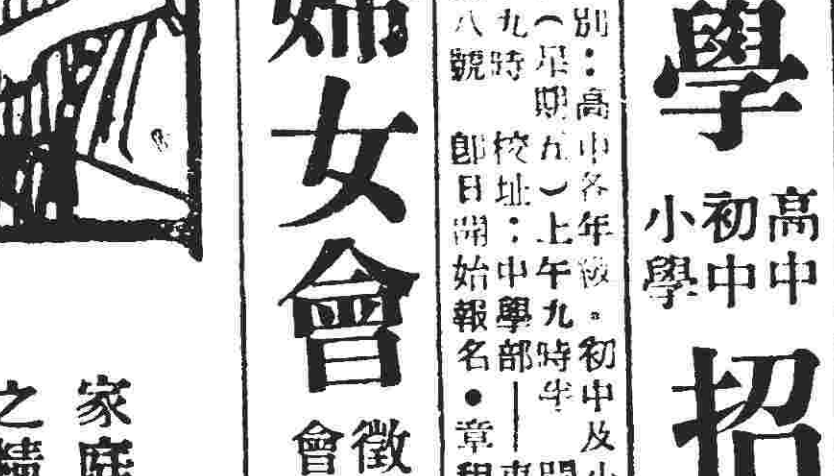 學
高中
初中
小學
招
別：高中各年級。初中及小
（星期五）上午九時半 開
九時 校址：中學部——
八號 即日開始報名●章程
婦女會
徵
會
家庭
之精